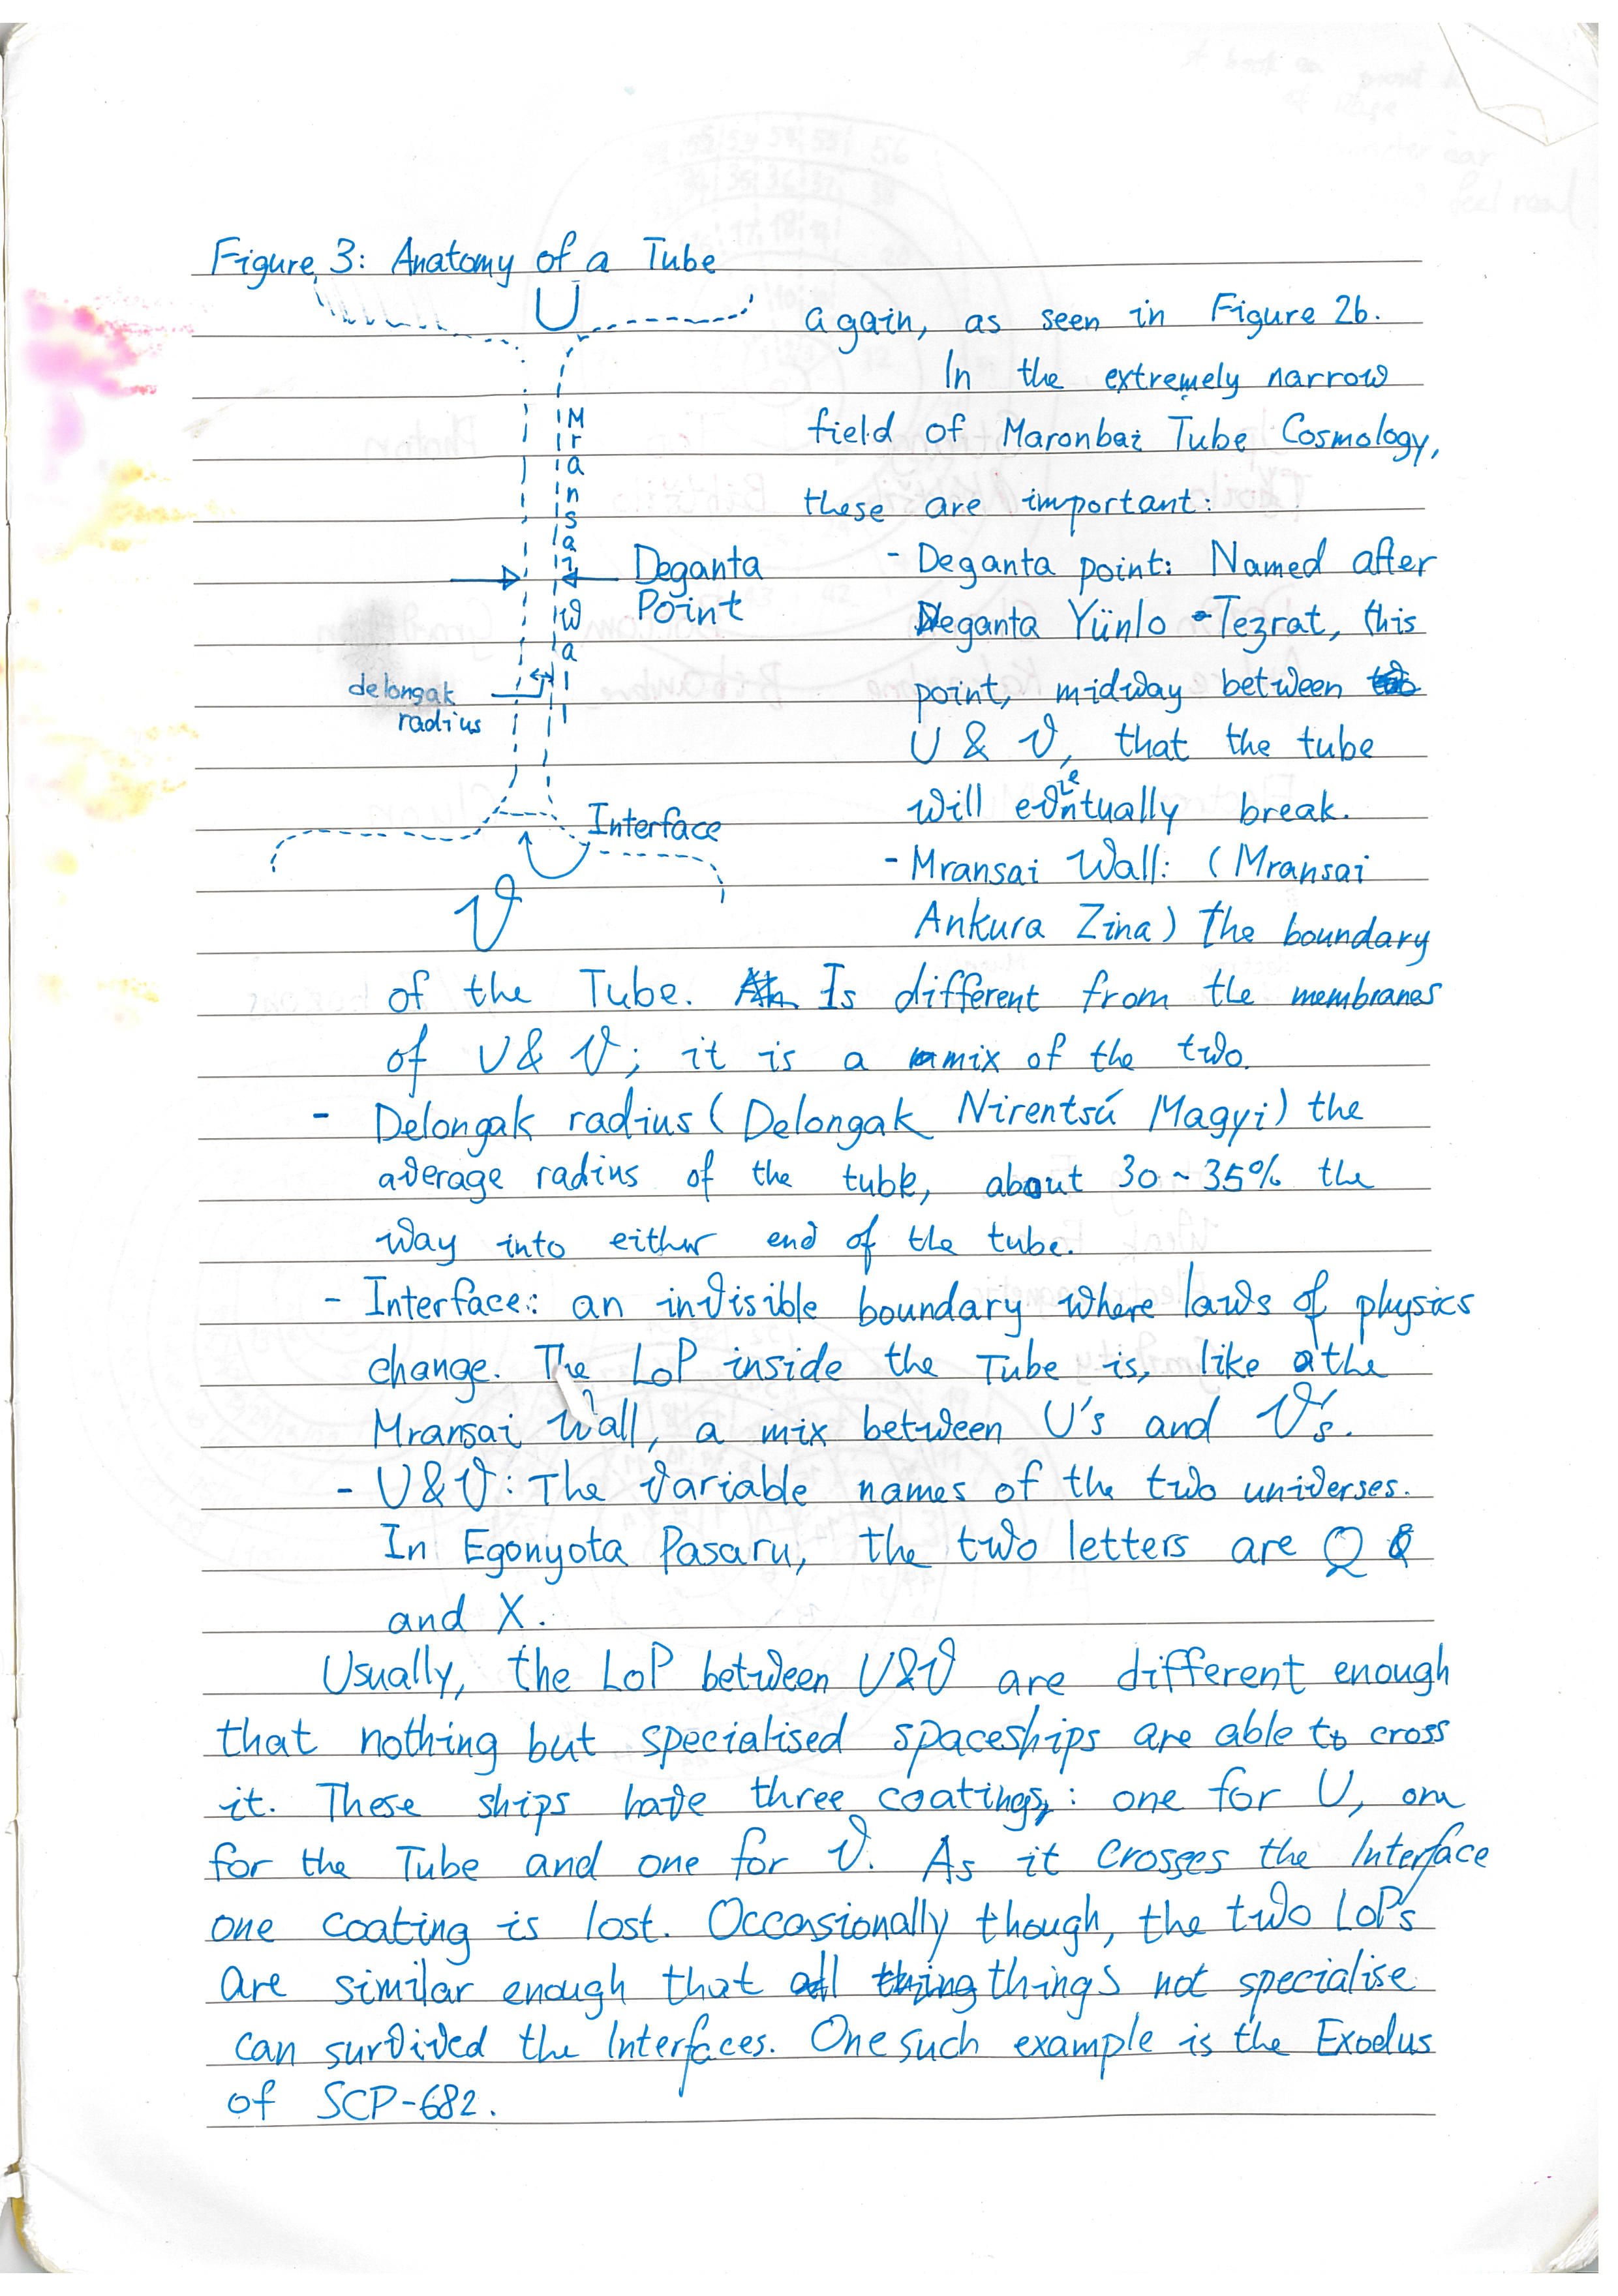 Figure 3: Anatomy of a Tube
U
Mransai Wall
Deganta
Point
delongak
radius
Interface
V
again, as seen in Figure 2b.
In the extremely narrow
field of Maronbai Tube Cosmology,
these are important:
- Deganta point: Named after
Deganta Yünlo-Tezrat, this
point, midway between
U & V, that the tube
will eventually break.
- Mransai Wall: (Mransai
Ankura Zina) the boundary
of the Tube. Is different from the membranes
of U & V; it is a mix of the two.
- Delongak radius (Delongak Nirentsú Magyi) the
average radius of the tube, about 30~35% the
way into either end of the tube.
- Interface: an invisible boundary where laws of physics
change. The LoP inside the Tube is, like the
Mransai Wall, a mix between U's and V's.
- U & V: The variable names of the two universes.
In Egonyota Pasaru, the two letters are Q
and X.
Usually, the LoP between U & V are different enough
that nothing but specialised spaceships are able to cross
it. These ships have three coatings: one for U, one
for the Tube and one for V. As it crosses the Interface
one coating is lost. Occasionally though, the two LoP's
are similar enough that all things not specialise
can survived the Interfaces. One such example is the Exodus
of SCP-682.